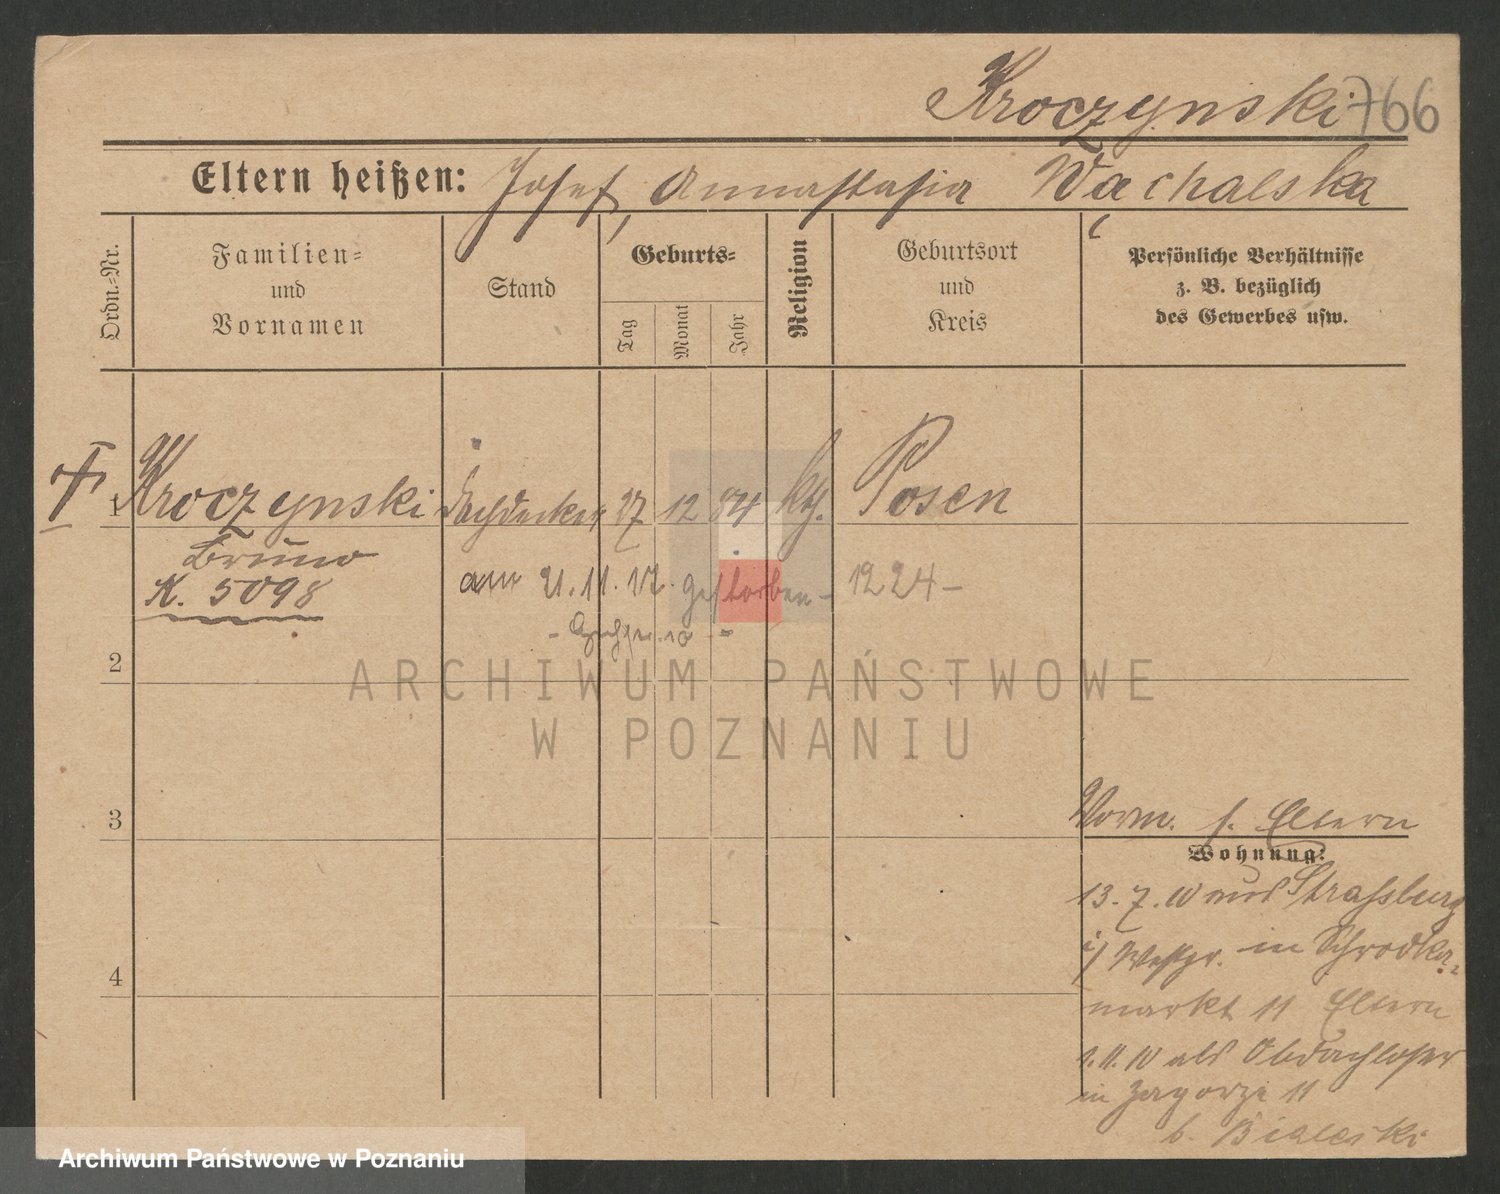 Kroczynski 766
Eltern heißen: Josef, Annastasia Wachalska
Ordn.-Nr.
Familien-
und
Vornamen
Stand
Geburts-
Tag
Monat
Jahr
Religion
Geburtsort
und
Kreis
Persönliche Verhältnisse
z. B. bezüglich
des Gewerbes usw.
1 Kroczynski Dachdecker 27 12 84 kth. Posen
Bruno
K. 5098
am 21.11.12. gestorben - 1224 -
2
ARCHIWUM PAŃSTWOWE
W POZNANIU
3
Vorm. s. Eltern
Wohnung:
13.7.10 aus Strassburg
i/ Westpr. in Schrodka-
markt 11 Eltern
4
1.11.10 als Obdachloser
in Zagorze 11
b. Bialeski
Archiwum Państwowe w Poznaniu